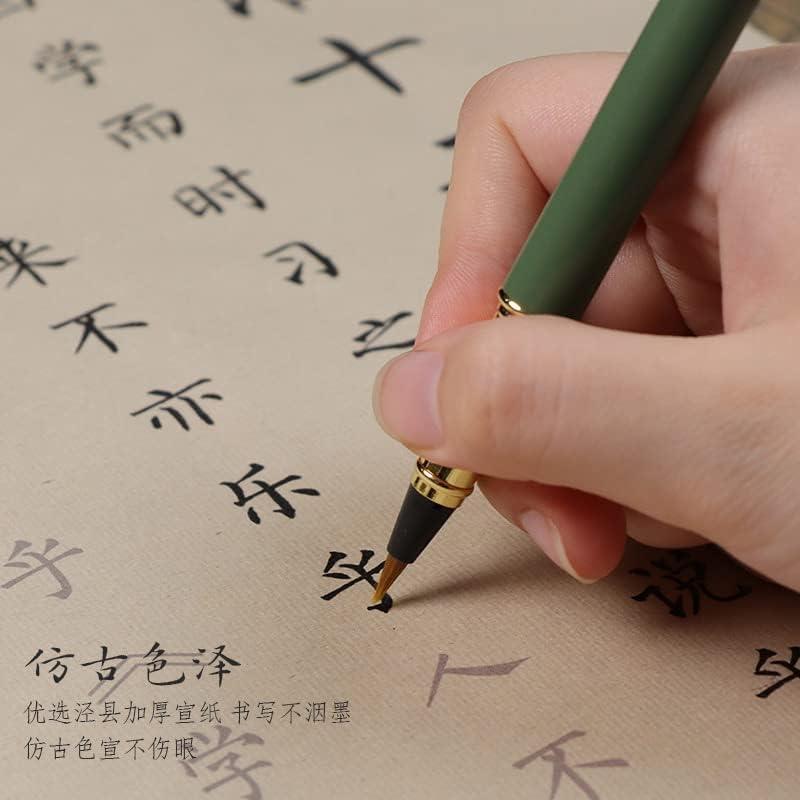 十
学而时习之说乎
来不亦乐乎人不
乎学
仿古色泽
优选泾县加厚宣纸 书写不洇墨
仿古色宣不伤眼